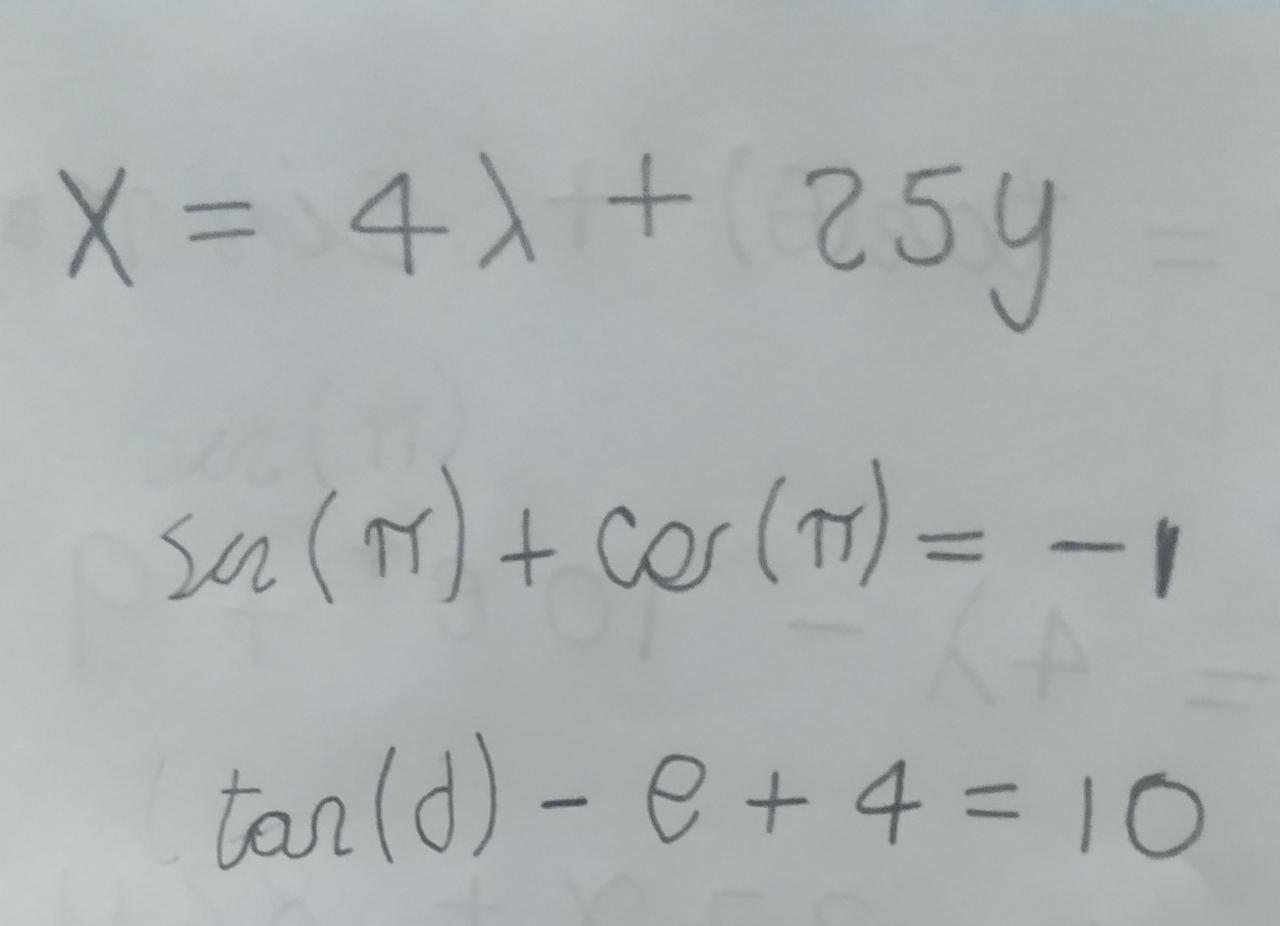 x = 4λ + 25y
sin(π) + cos(π) = -1
tan(d) - e + 4 = 10